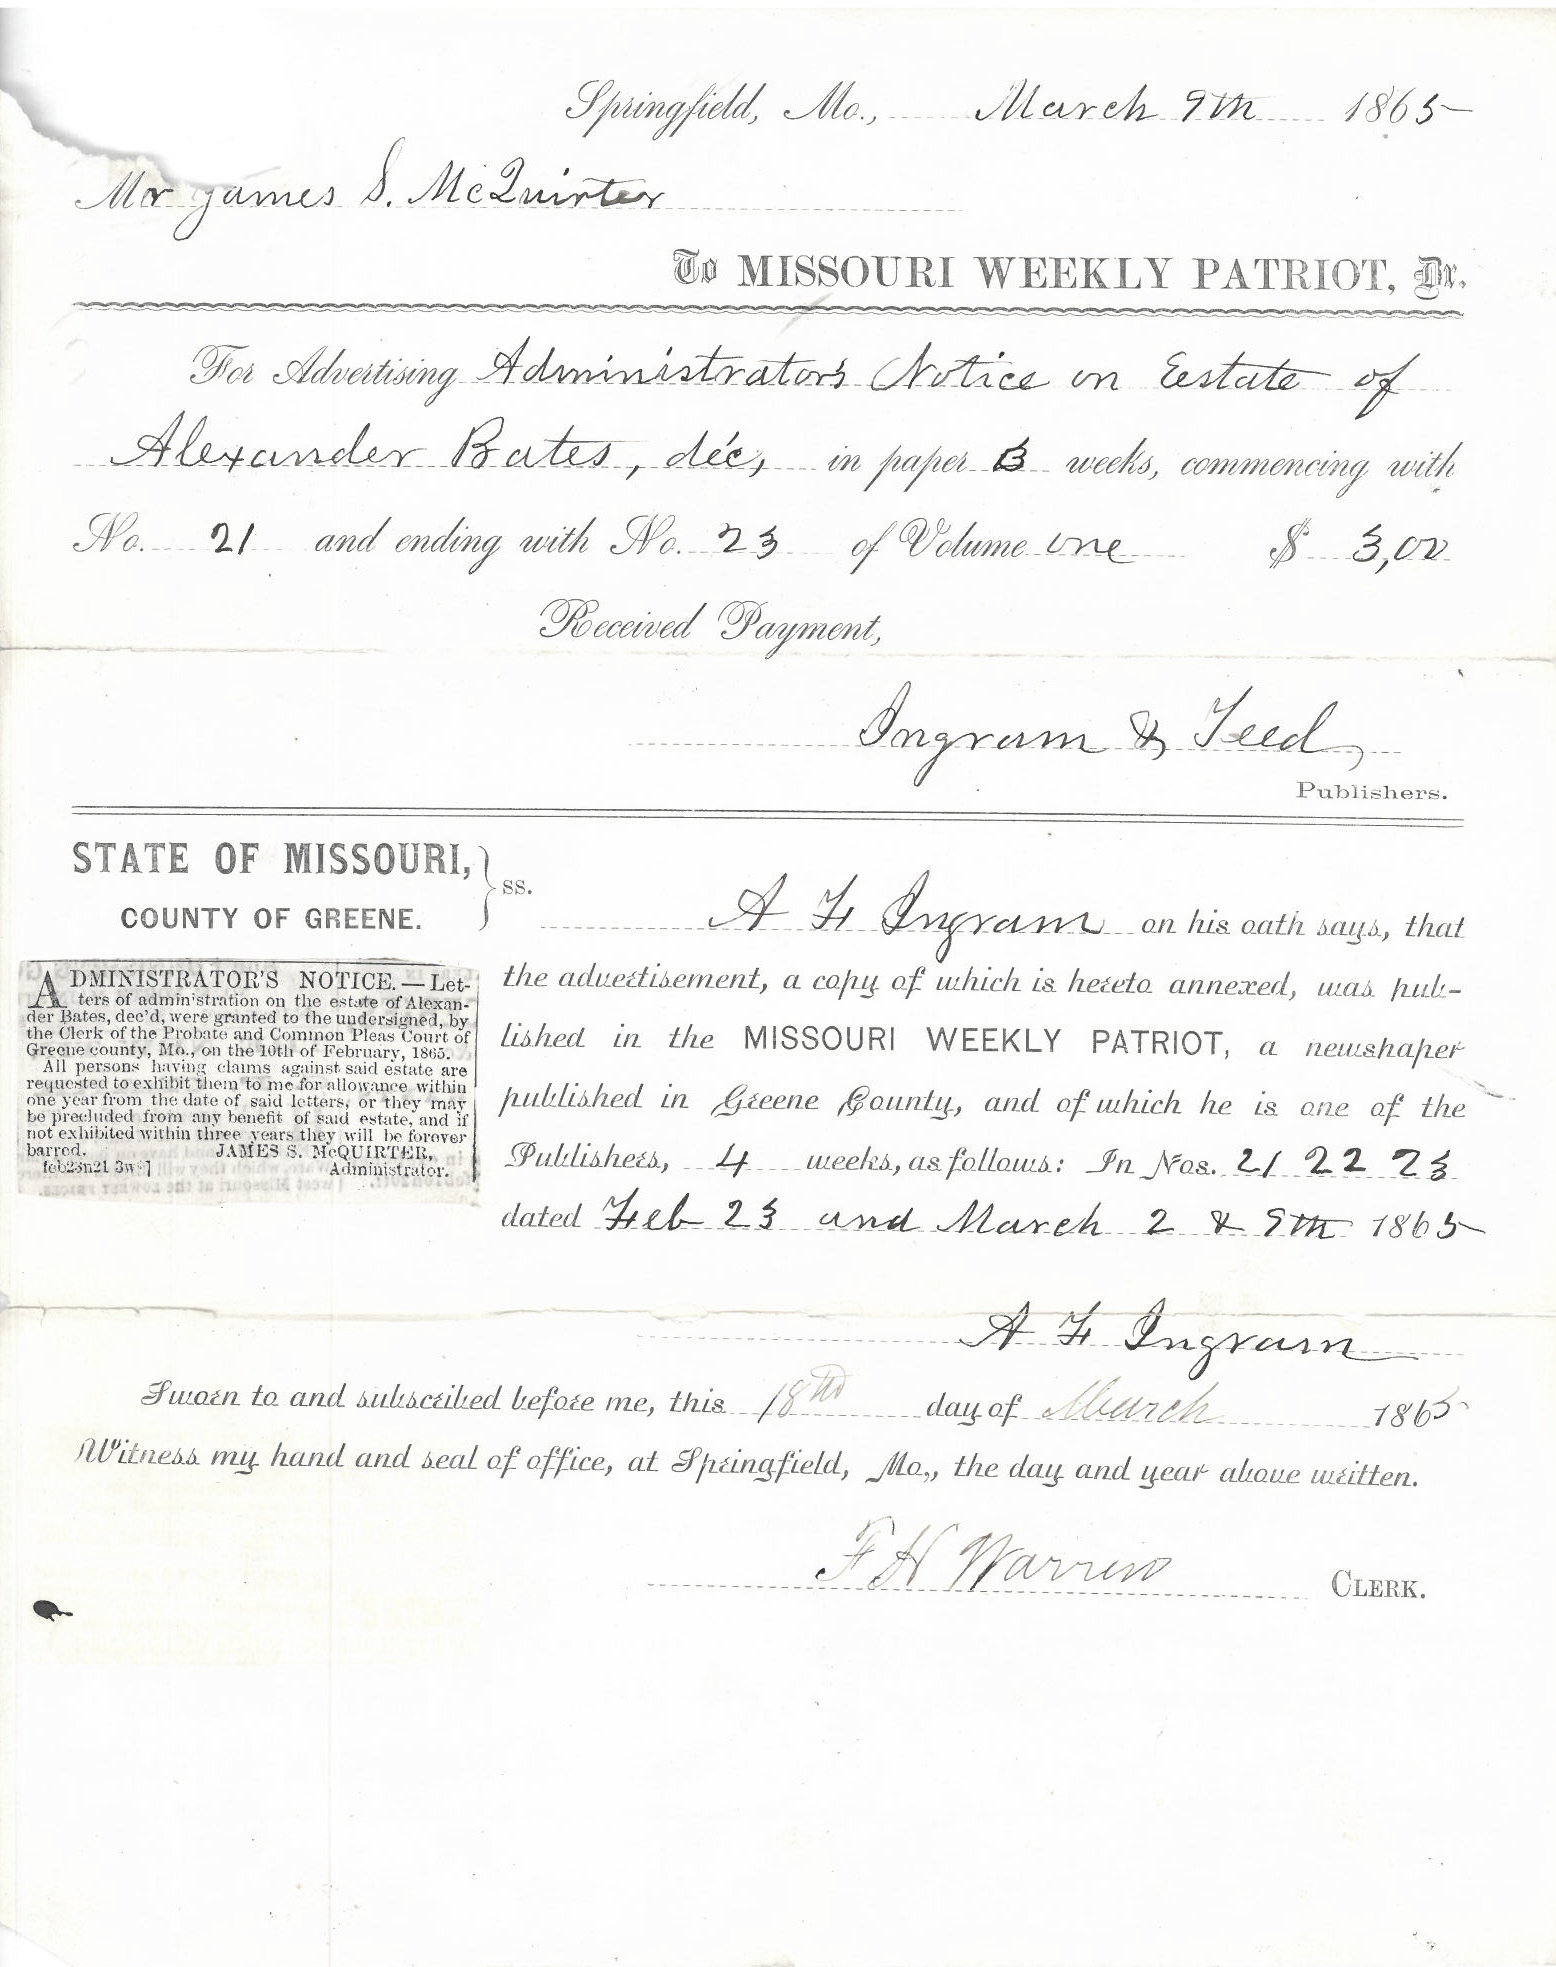 Springfield, Mo., March 9th 1865
Mr James S. McQuirter
To MISSOURI WEEKLY PATRIOT, Dr.
For Advertising Administrator's Notice on Estate of
Alexander Bates, dec, in paper 3 weeks, commencing with
No. 21 and ending with No. 23 of Volume one $ 3,00
Received Payment,
Ingram & Teed,
Publishers.
STATE OF MISSOURI,
COUNTY OF GREENE.
ss.
A F Ingram on his oath says, that
the advertisement, a copy of which is hereto annexed, was pub-
lished in the MISSOURI WEEKLY PATRIOT, a newshaper
published in Greene County, and of which he is one of the
Publishers, 4 weeks, as follows: In Nos. 21 22 23
dated Feb 23 and March 2 & 9th 1865
ADMINISTRATOR'S NOTICE.—Let-
ters of administration on the estate of Alexan-
der Bates, dec'd, were granted to the undersigned, by
the Clerk of the Probate and Common Pleas Court of
Greene county, Mo., on the 10th of February, 1865.
All persons having claims against said estate are
requested to exhibit them to me for allowance within
one year from the date of said letters, or they may
be precluded from any benefit of said estate, and if
not exhibited within three years they will be forever
barred. JAMES S. McQUIRTER,
feb23n21 3w Administrator.
A F Ingram
Sworn to and subscribed before me, this 18th day of March 1865
Witness my hand and seal of office, at Springfield, Mo., the day and year above written.
F H Warren CLERK.